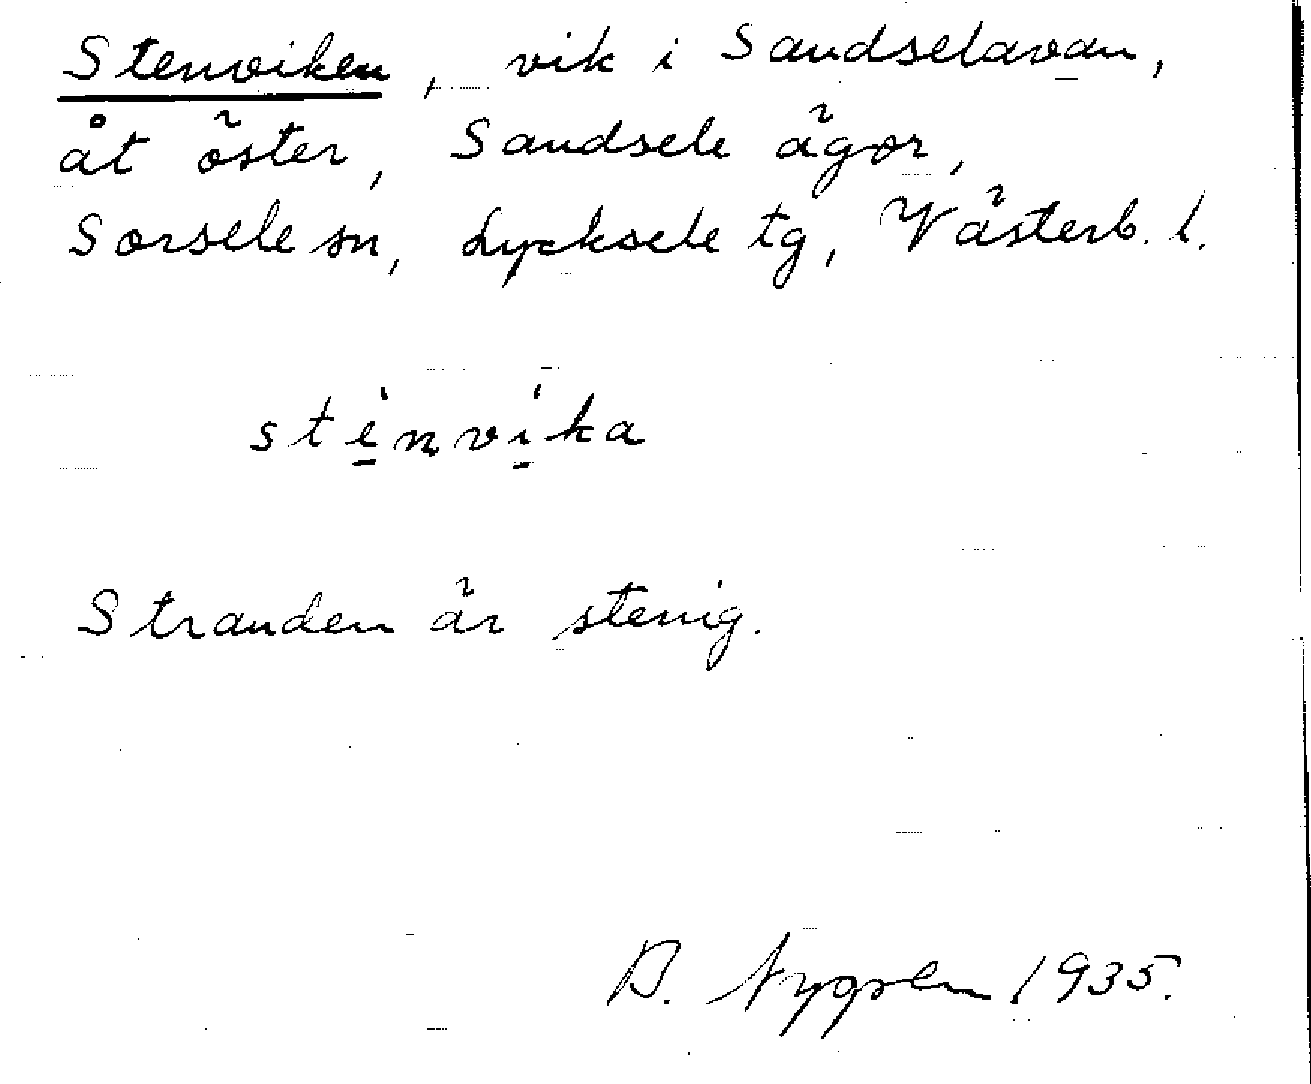 Stenviken, vik i Sandselavan,
åt öster, Sandsele ägor,
Sorsele sn, Lycksele tg, Västerb. l.
ste̱'nvi̱'ka
Stranden är stenig.
B. Nygren 1935.